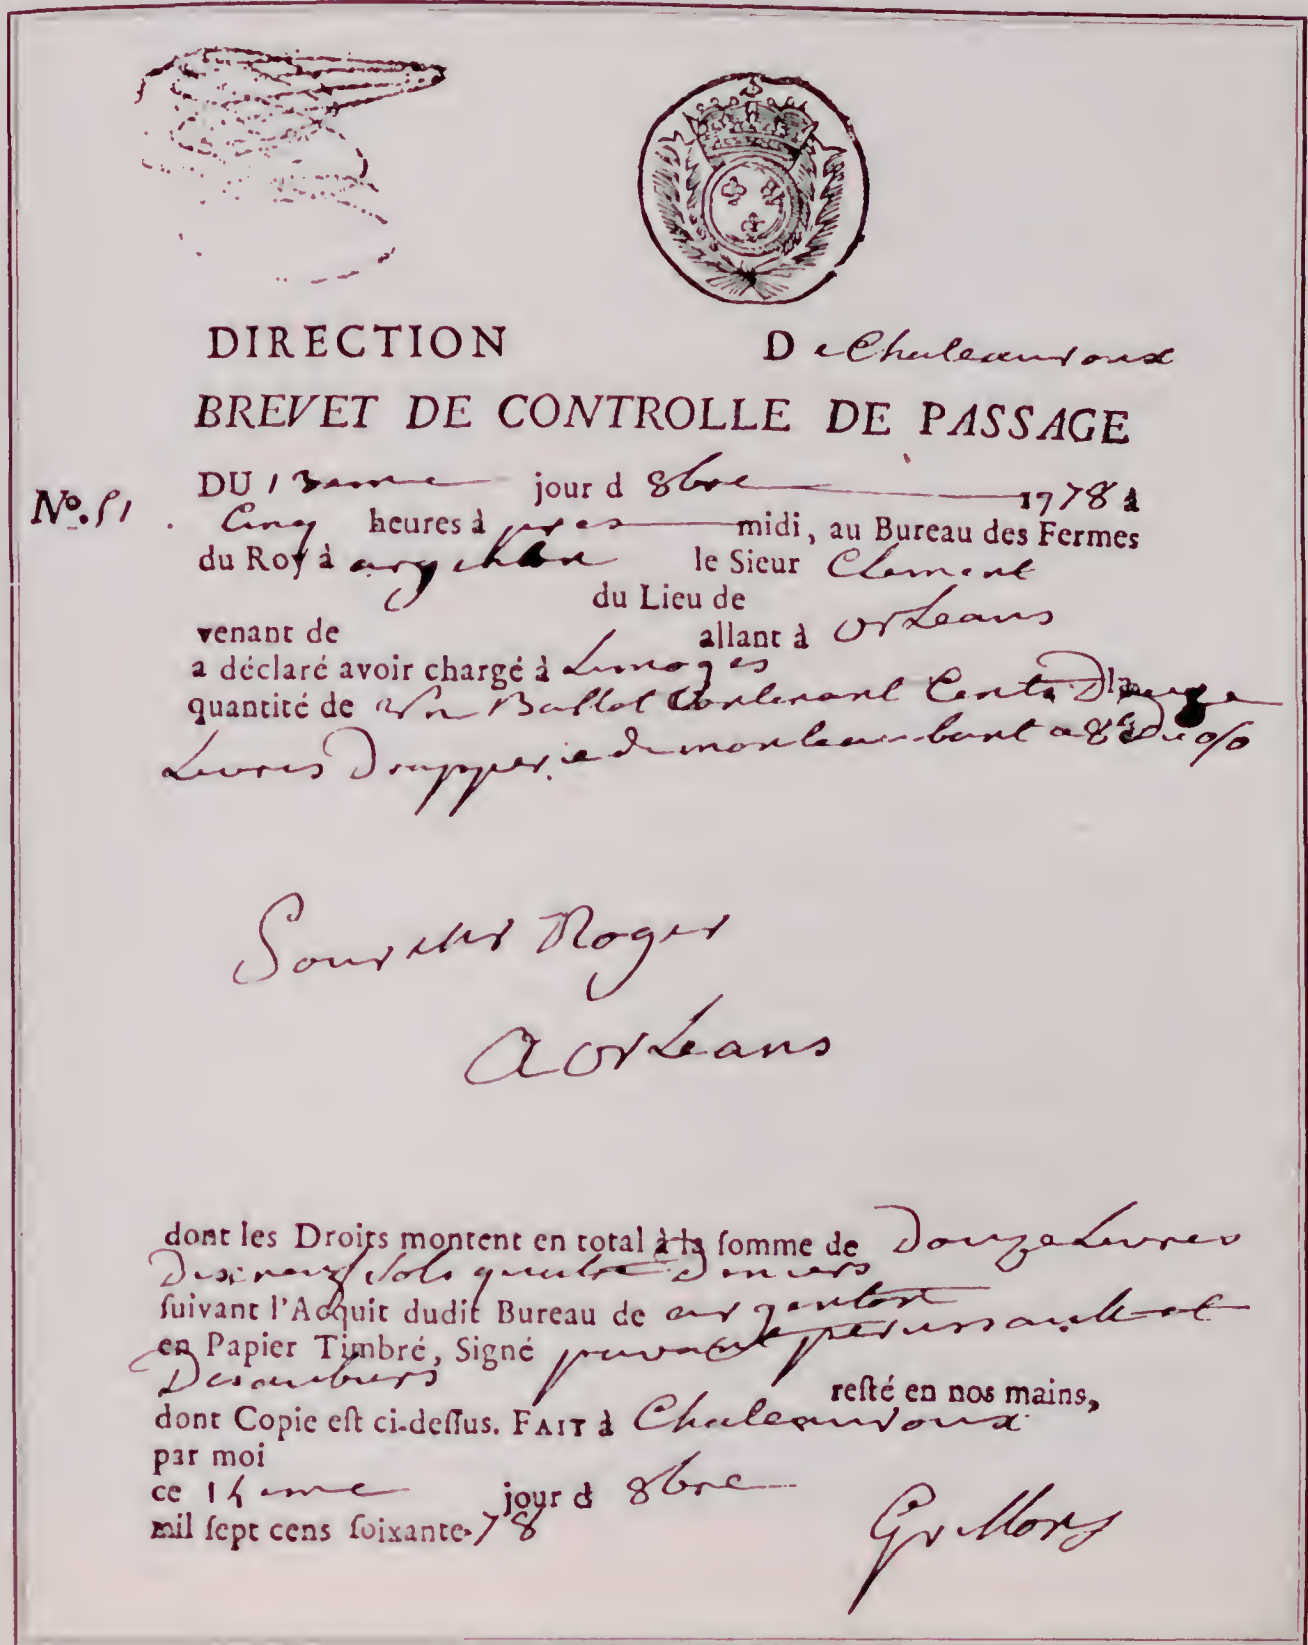 DIRECTION De Chateauroux
BREVET DE CONTROLLE DE PASSAGE
N°. 51
DU 13eme jour d 8bre 1778 à
Cinq heures à pres midi, au Bureau des Fermes
du Roy à argenton le Sieur Clement
du Lieu de
venant de allant à Orleans
a déclaré avoir chargé à Limoges
quantité de Un Ballot Contenant Cent
Livres Drapperie de montauban
Pour Mr Roger
A Orleans
dont les Droits montent en total à la ſomme de Douze Livres
Dixneuf Sols quatre Deniers
ſuivant l'Acquit dudit Bureau de argenton
en Papier Timbré, Signé
reſté en nos mains,
dont Copie eſt ci-deſſus. FAIT à Chateauroux
par moi
ce 14eme jour d 8bre
mil ſept cens ſoixante-78